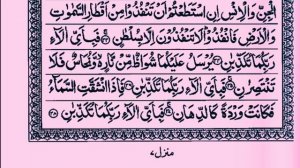 الْجِنِّ وَالْاِنْسِ اِنِ اسْتَطَعْتُمْ اَنْ تَنْفُذُوْا مِنْ اَقْطَارِ السَّمٰوٰتِ
وَالْاَرْضِ فَانْفُذُوْا لَا تَنْفُذُوْنَ اِلَّا بِسُلْطٰنٍ فَبِاَيِّ اٰلَآءِ
رَبِّكُمَا تُكَذِّبٰنِ يُرْسَلُ عَلَيْكُمَا شُوَاظٌ مِّنْ نَّارٍ وَّنُحَاسٌ فَلَا
تَنْتَصِرٰنِ فَبِاَيِّ اٰلَآءِ رَبِّكُمَا تُكَذِّبٰنِ فَاِذَا انْشَقَّتِ السَّمَآءُ
فَكَانَتْ وَرْدَةً كَالدِّهَانِ فَبِاَيِّ اٰلَآءِ رَبِّكُمَا تُكَذِّبٰنِ
منزل ۷